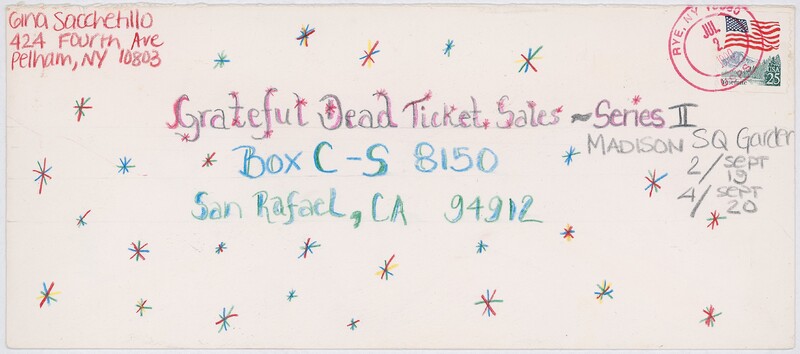 Gina Sacchetillo
424 Fourth Ave
Pelham, NY 10803
RYE, NY
JUL
2
USPS
USA
25
Grateful Dead Ticket Sales ~ Series II
Box C-S 8150
San Rafael, CA 94912
MADISON SQ Garden
2/SEPT 19
4/SEPT 20